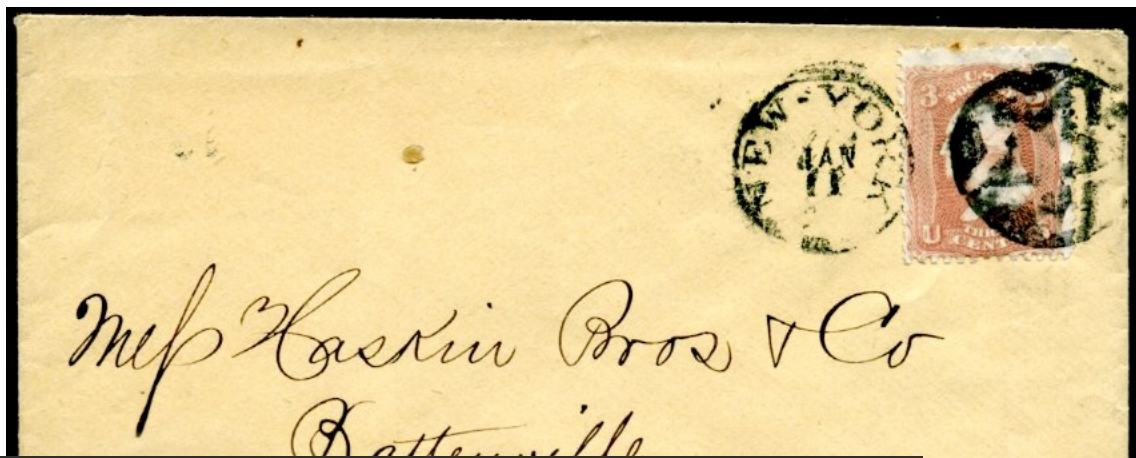 NEW-YORK
JAN
11
3
U.S.
U
CENT
Mess Haskin Bros & Co
Battenville